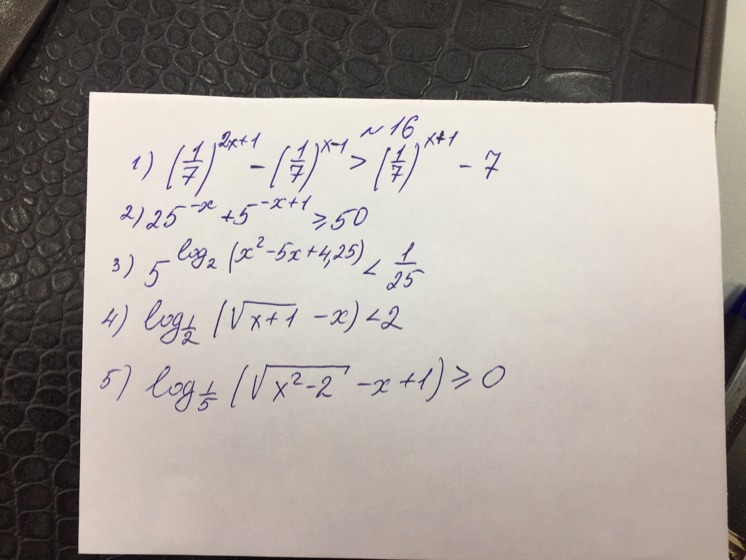 №16
1) (1/7)^(2x+1) - (1/7)^(x-1) > (1/7)^(x+1) - 7
2) 25^(-x) + 5^(-x+1) ≥ 50
3) 5^(log₂(x²-5x+4,25)) < 1/25
4) log_(1/2) (√(x+1) - x) < 2
5) log_(1/5) (√(x²-2) - x + 1) ≥ 0